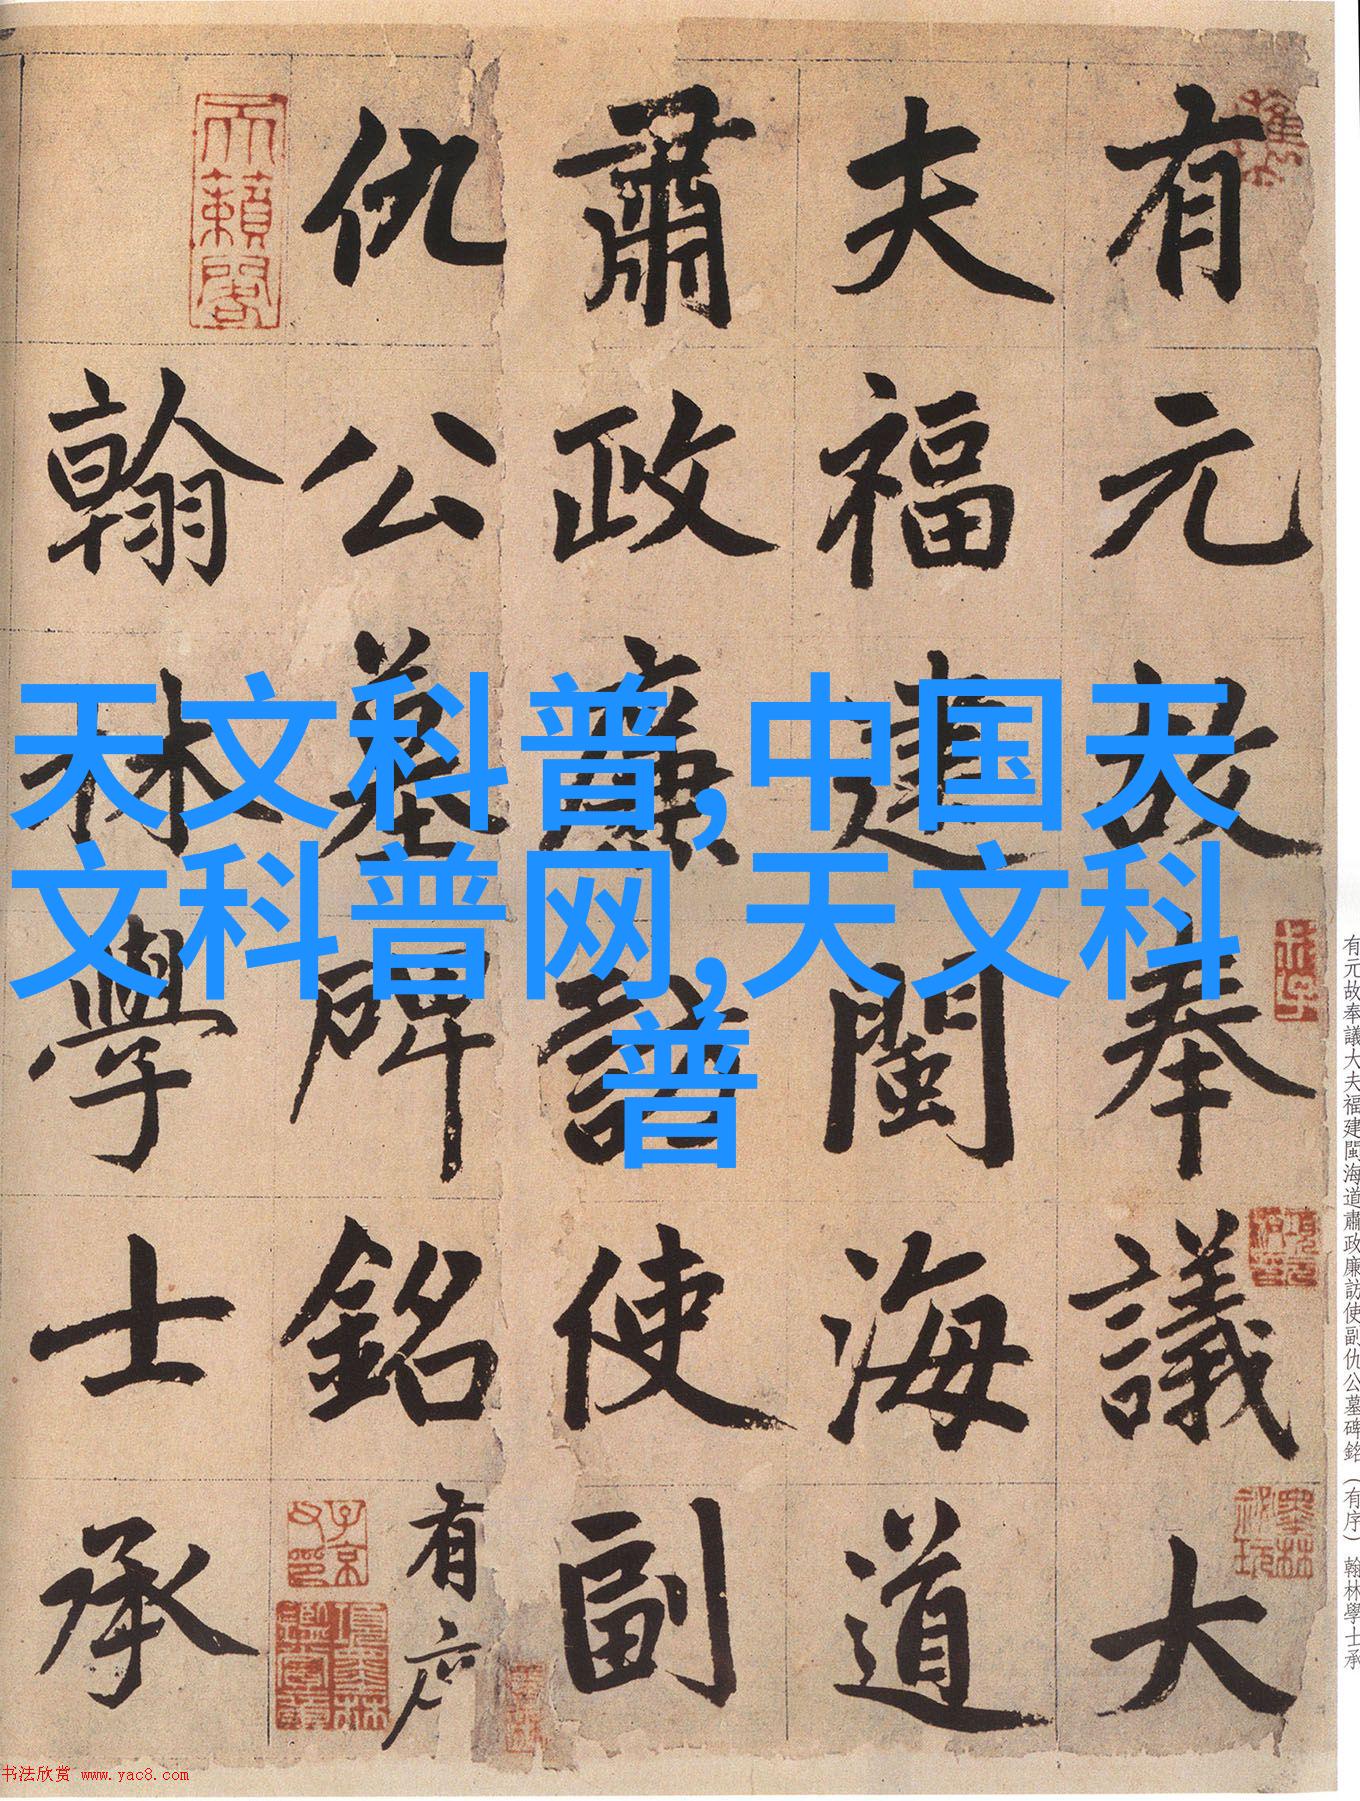 有元故奉議大
夫福建閩海道
肅政廉訪使副
仇公墓碑銘有序
翰林學士承
天籟閣
子京父印
天文科普,中国天
文科普网,天文科
普
有元故奉議大夫福建閩海道肅政廉訪使副仇公墓碑銘（有序）翰林學士承
书法欣赏 www.yac8.com